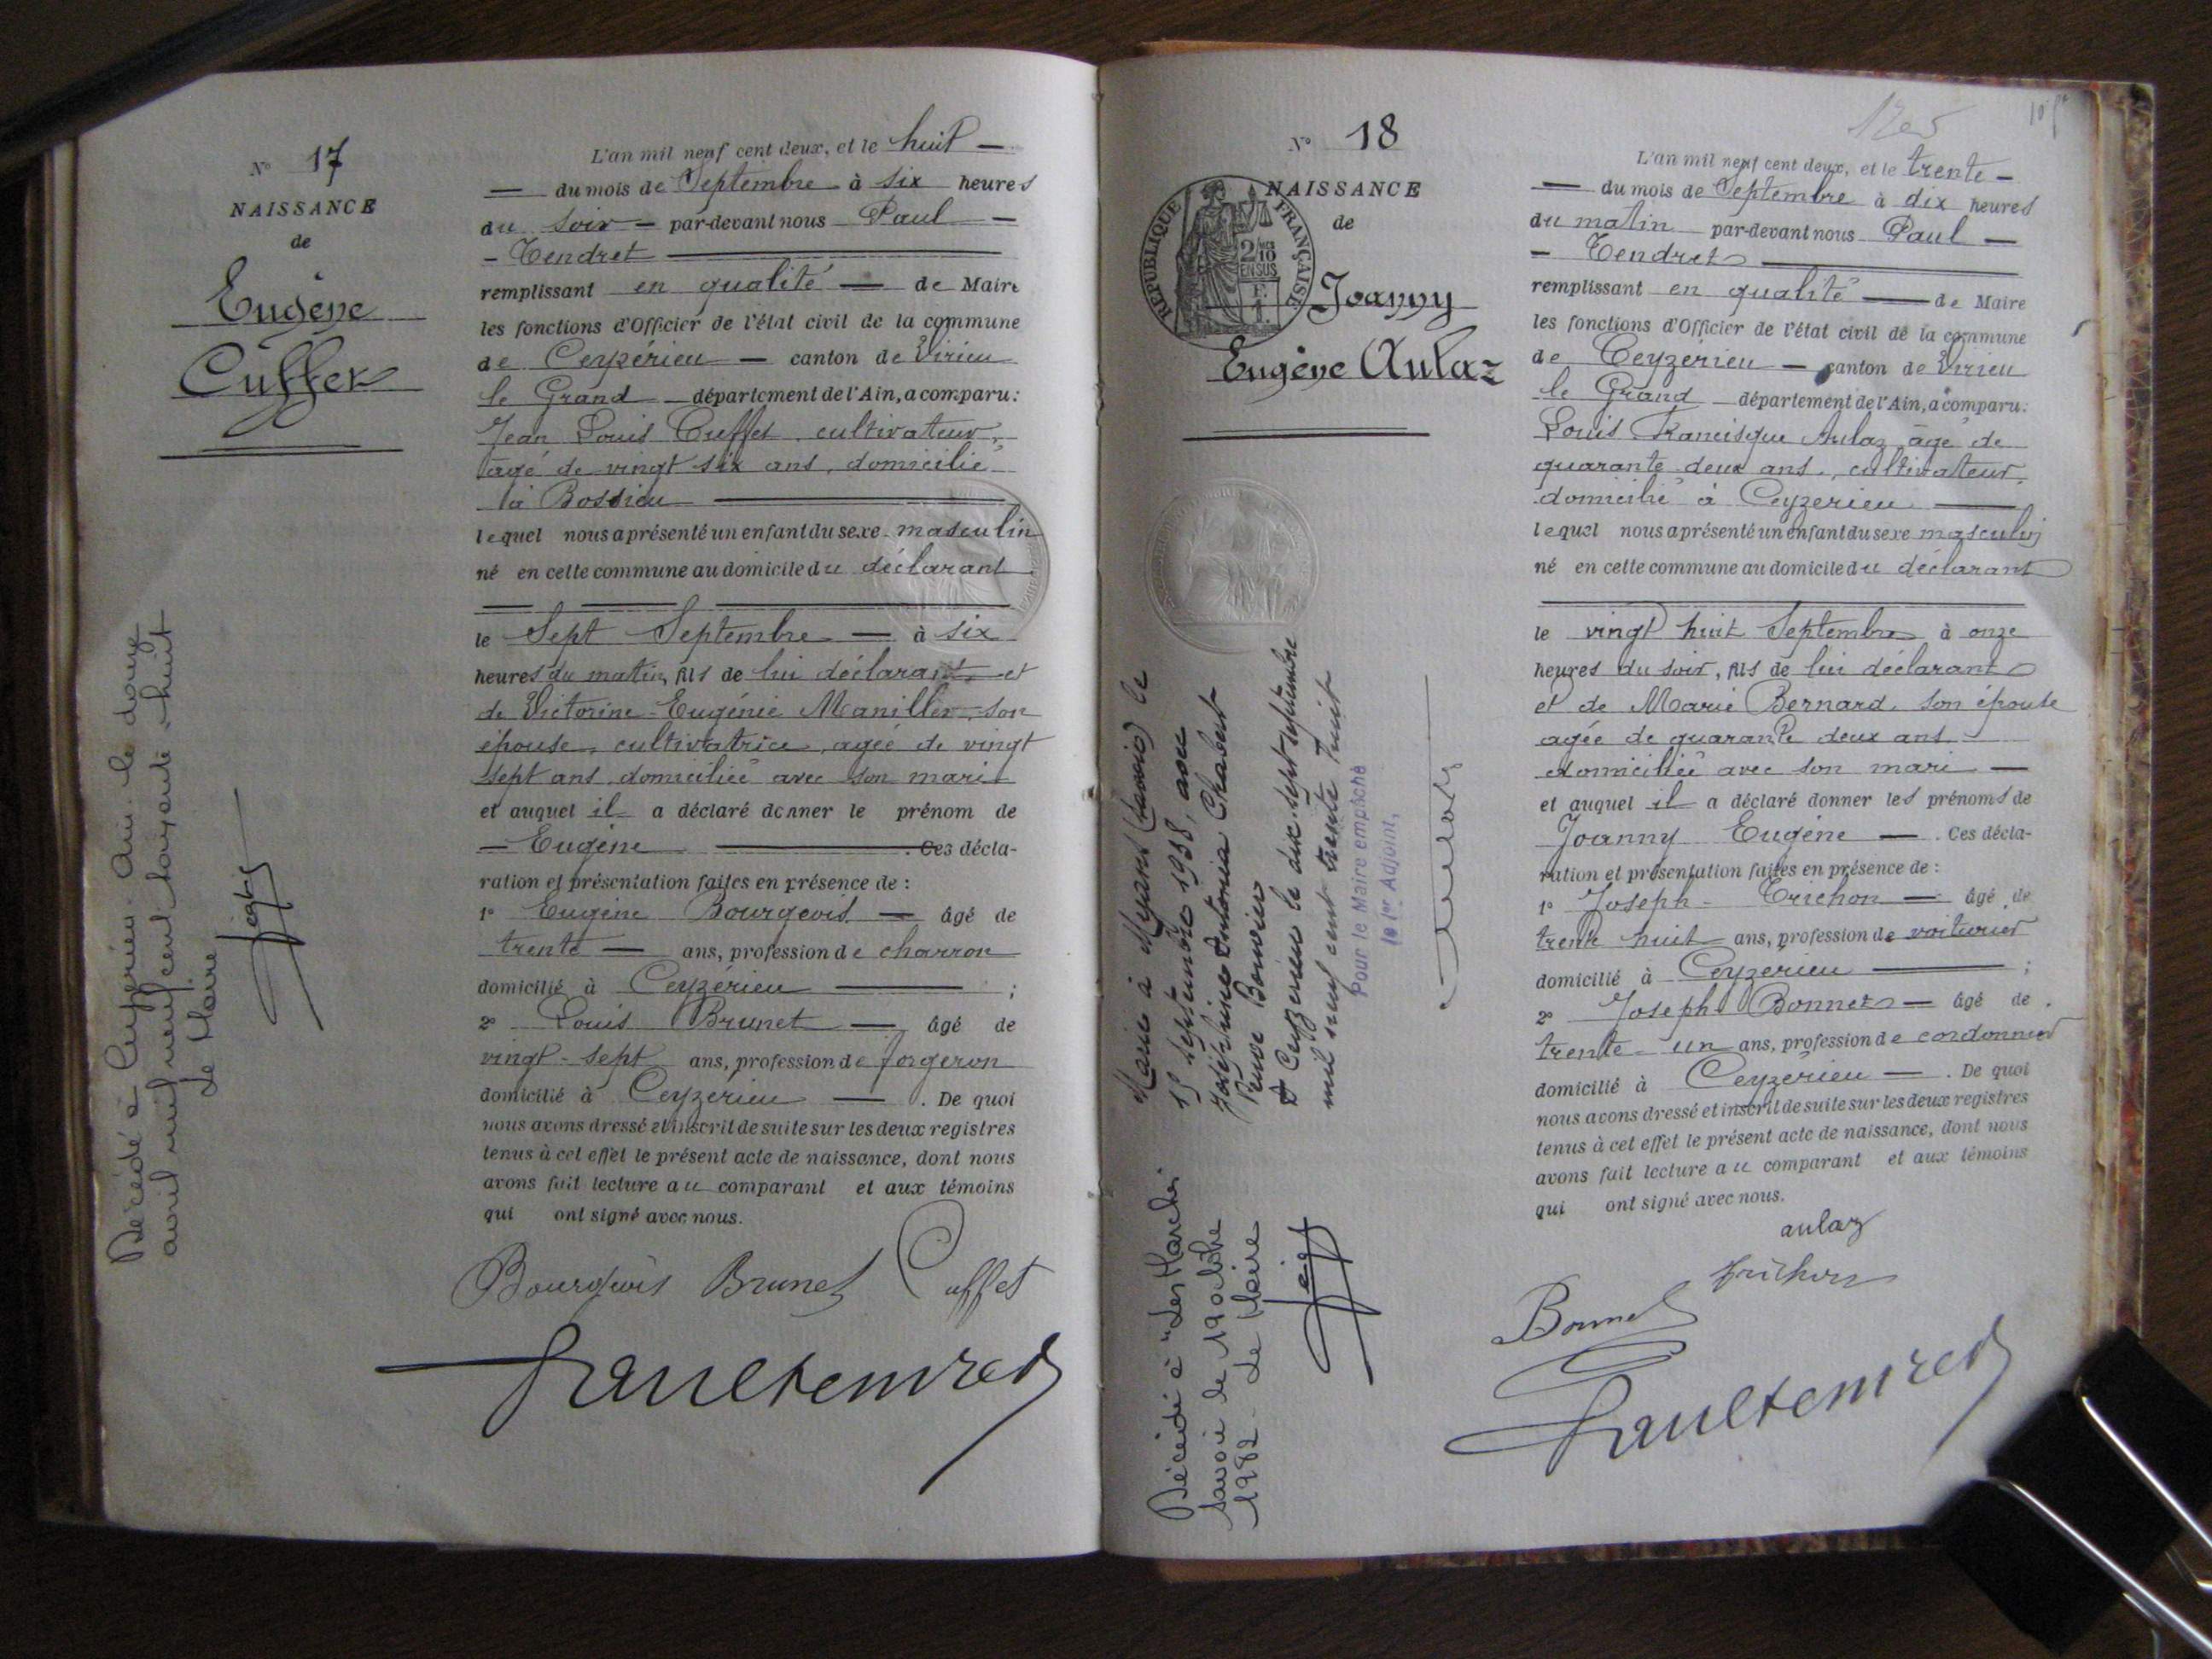 N° 17
NAISSANCE
de
Eugène
Cuffet
L'an mil neuf cent deux, et le huit —
— du mois de Septembre à six heures
du soir — par-devant nous Paul —
— Tendret —
remplissant en qualité — de Maire
les fonctions d'Officier de l'état civil de la commune
de Ceyzérieu — canton de Virieu
le Grand — département de l'Ain, a comparu:
Jean Louis Cuffet, cultivateur,
âgé de vingt six ans, domicilié
à Bossieu —
lequel nous a présenté un enfant du sexe masculin
né en cette commune au domicile du déclarant
le Sept Septembre — à six
heures du matin, fils de lui déclarant, et
de Victorine Eugénie Manillier, son
épouse, cultivatrice, agée de vingt
sept ans domiciliée avec son mari
et auquel il a déclaré donner le prénom de
— Eugène — . Ces décla-
ration et présentation faites en présence de :
1° Eugène Bourgeois — âgé de
trente — ans, profession de charron
domicilié à Ceyzérieu — ;
2° Louis Brunet — âgé de
vingt-sept ans, profession de forgeron
domicilié à Ceyzérieu — . De quoi
nous avons dressé et inscrit de suite sur les deux registres
tenus à cet effet le présent acte de naissance, dont nous
avons fait lecture au comparant et aux témoins
qui ont signé avec nous.
Bourgeois Brunet Cuffet
Paul Tendret
Décédé à Ceyzérieu - Ain - le douze
avril mil neuf cent soixante-huit
Le Maire
N° 18
NAISSANCE
de
RÉPUBLIQUE FRANÇAISE
2/10
EN SUS
Joanny
Eugène Aulaz
L'an mil neuf cent deux, et le trente —
— du mois de Septembre à dix heures
du matin par-devant nous Paul —
— Tendret —
remplissant en qualité — de Maire
les fonctions d'Officier de l'état civil de la commune
de Ceyzérieu — canton de Virieu
le Grand — département de l'Ain, a comparu:
Louis Francisque Aulaz, âgé de
quarante deux ans, cultivateur,
domicilié à Ceyzerieu —
lequel nous a présenté un enfant du sexe masculin
né en cette commune au domicile du déclarant
le vingt huit Septembre à onze
heures du soir, fils de lui déclarant
et de Marie Bernard, son épouse
agée de quarante deux ans
domiciliée avec son mari —
et auquel il a déclaré donner les prénoms de
Joanny Eugène — . Ces décla-
ration et présentation faites en présence de :
1° Joseph Trichon — âgé de
trente huit ans, profession de voiturier
domicilié à Ceyzerieu — ;
2° Joseph Bonnet — âgé de
trente-un ans, profession de cordonnier
domicilié à Ceyzérieu — . De quoi
nous avons dressé et inscrit de suite sur les deux registres
tenus à cet effet le présent acte de naissance, dont nous
avons fait lecture au comparant et aux témoins
qui ont signé avec nous.
aulaz
Trichon
Bonnet
Paul Tendret
Marié à Myans (Savoie) le
septembre 1938, avec
Joséphine Antonia Chabert
Veuve
A Ceyzerieu le dix-sept septembre
mil neuf cent trente huit
Pour le Maire empêché
le 1er Adjoint,
Décédé à "Les Marches"
Savoie le 19 octobre
1982 - Le Maire